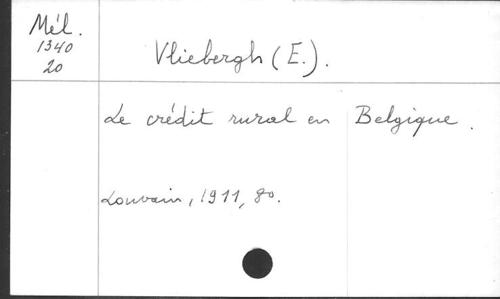 Mél.
1340
20
Vliebergh (E.).
Le crédit rural en Belgique.
Louvain, 1911, 8o.